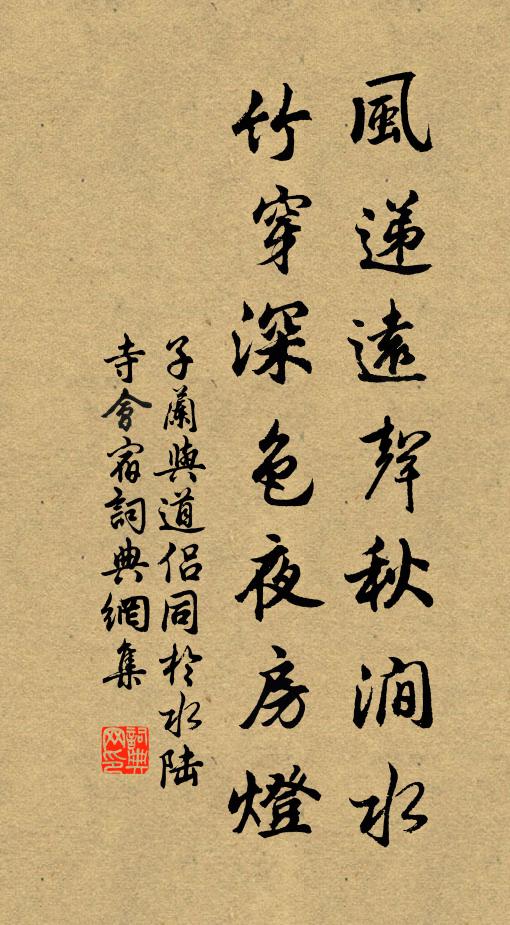 風遞遠聲秋澗水
竹穿深色夜房燈
子蘭與道侶同於水陸
寺會宿詞典網集
詞典網印